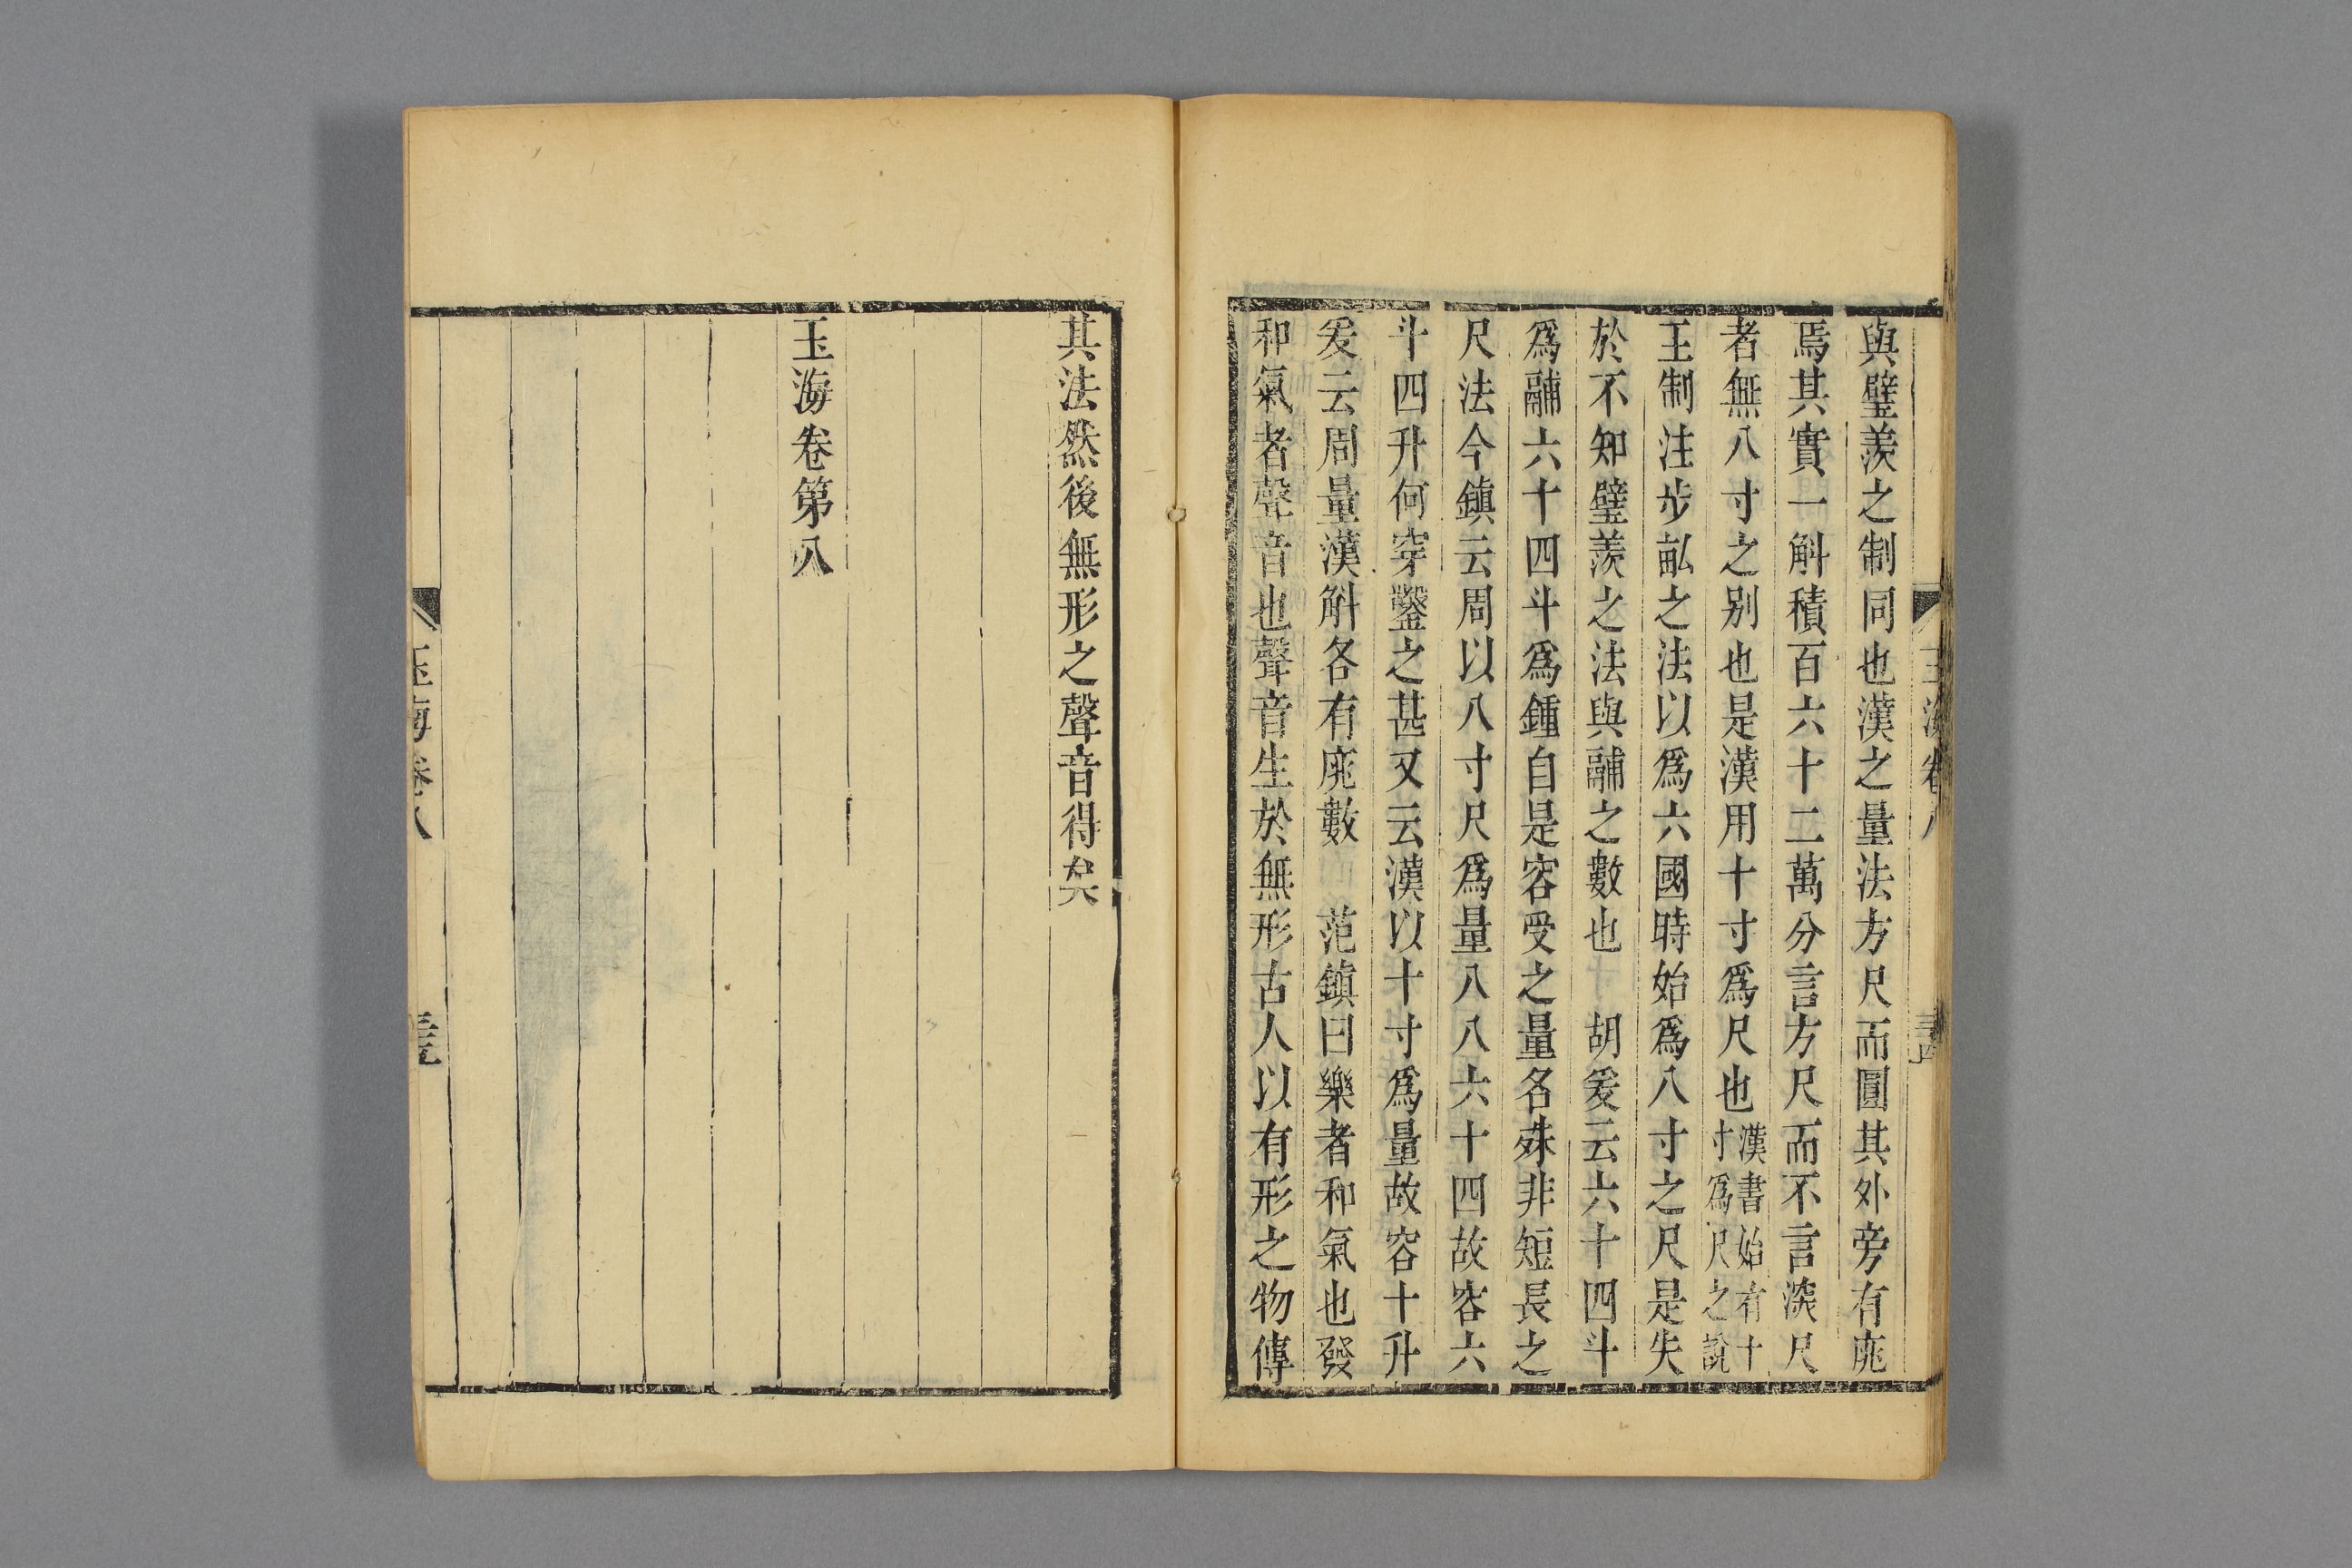 與璧羨之制同也漢之量法方尺而圓其外旁有庣
焉其實一斛積百六十二萬分言方尺而不言深尺
者無八寸之別也是漢用十寸爲尺也漢書始有十寸爲尺之說
王制注步畝之法以爲六國時始爲八寸之尺是失
於不知璧羨之法與鬴之數也　胡爰云六十四斗
爲鬴六十四斗爲鍾自是容受之量名殊非短長之
尺法今鎮云周以八寸尺爲量八八六十四故容六
斗四升何穿鑿之甚又云漢以十寸爲量故容十升
爰云周量漢斛各有庣數　范鎮曰樂者和氣也發
和氣者聲音也聲音生於無形古人以有形之物傳
玉海卷八
其法然後無形之聲音得矣
玉海卷第八
玉海卷八